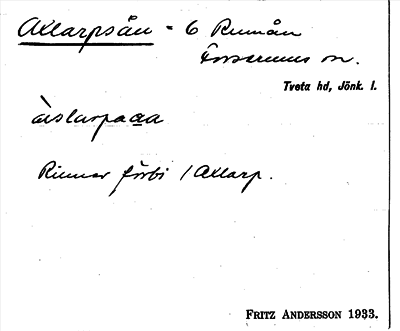 Axlarpsån = 6 Rumån
Forserums sn.
Tveta hd, Jönk. l.
àslarpaꭤa
Rinner förbi 1 Axlarp.
FRITZ ANDERSSON 1933.